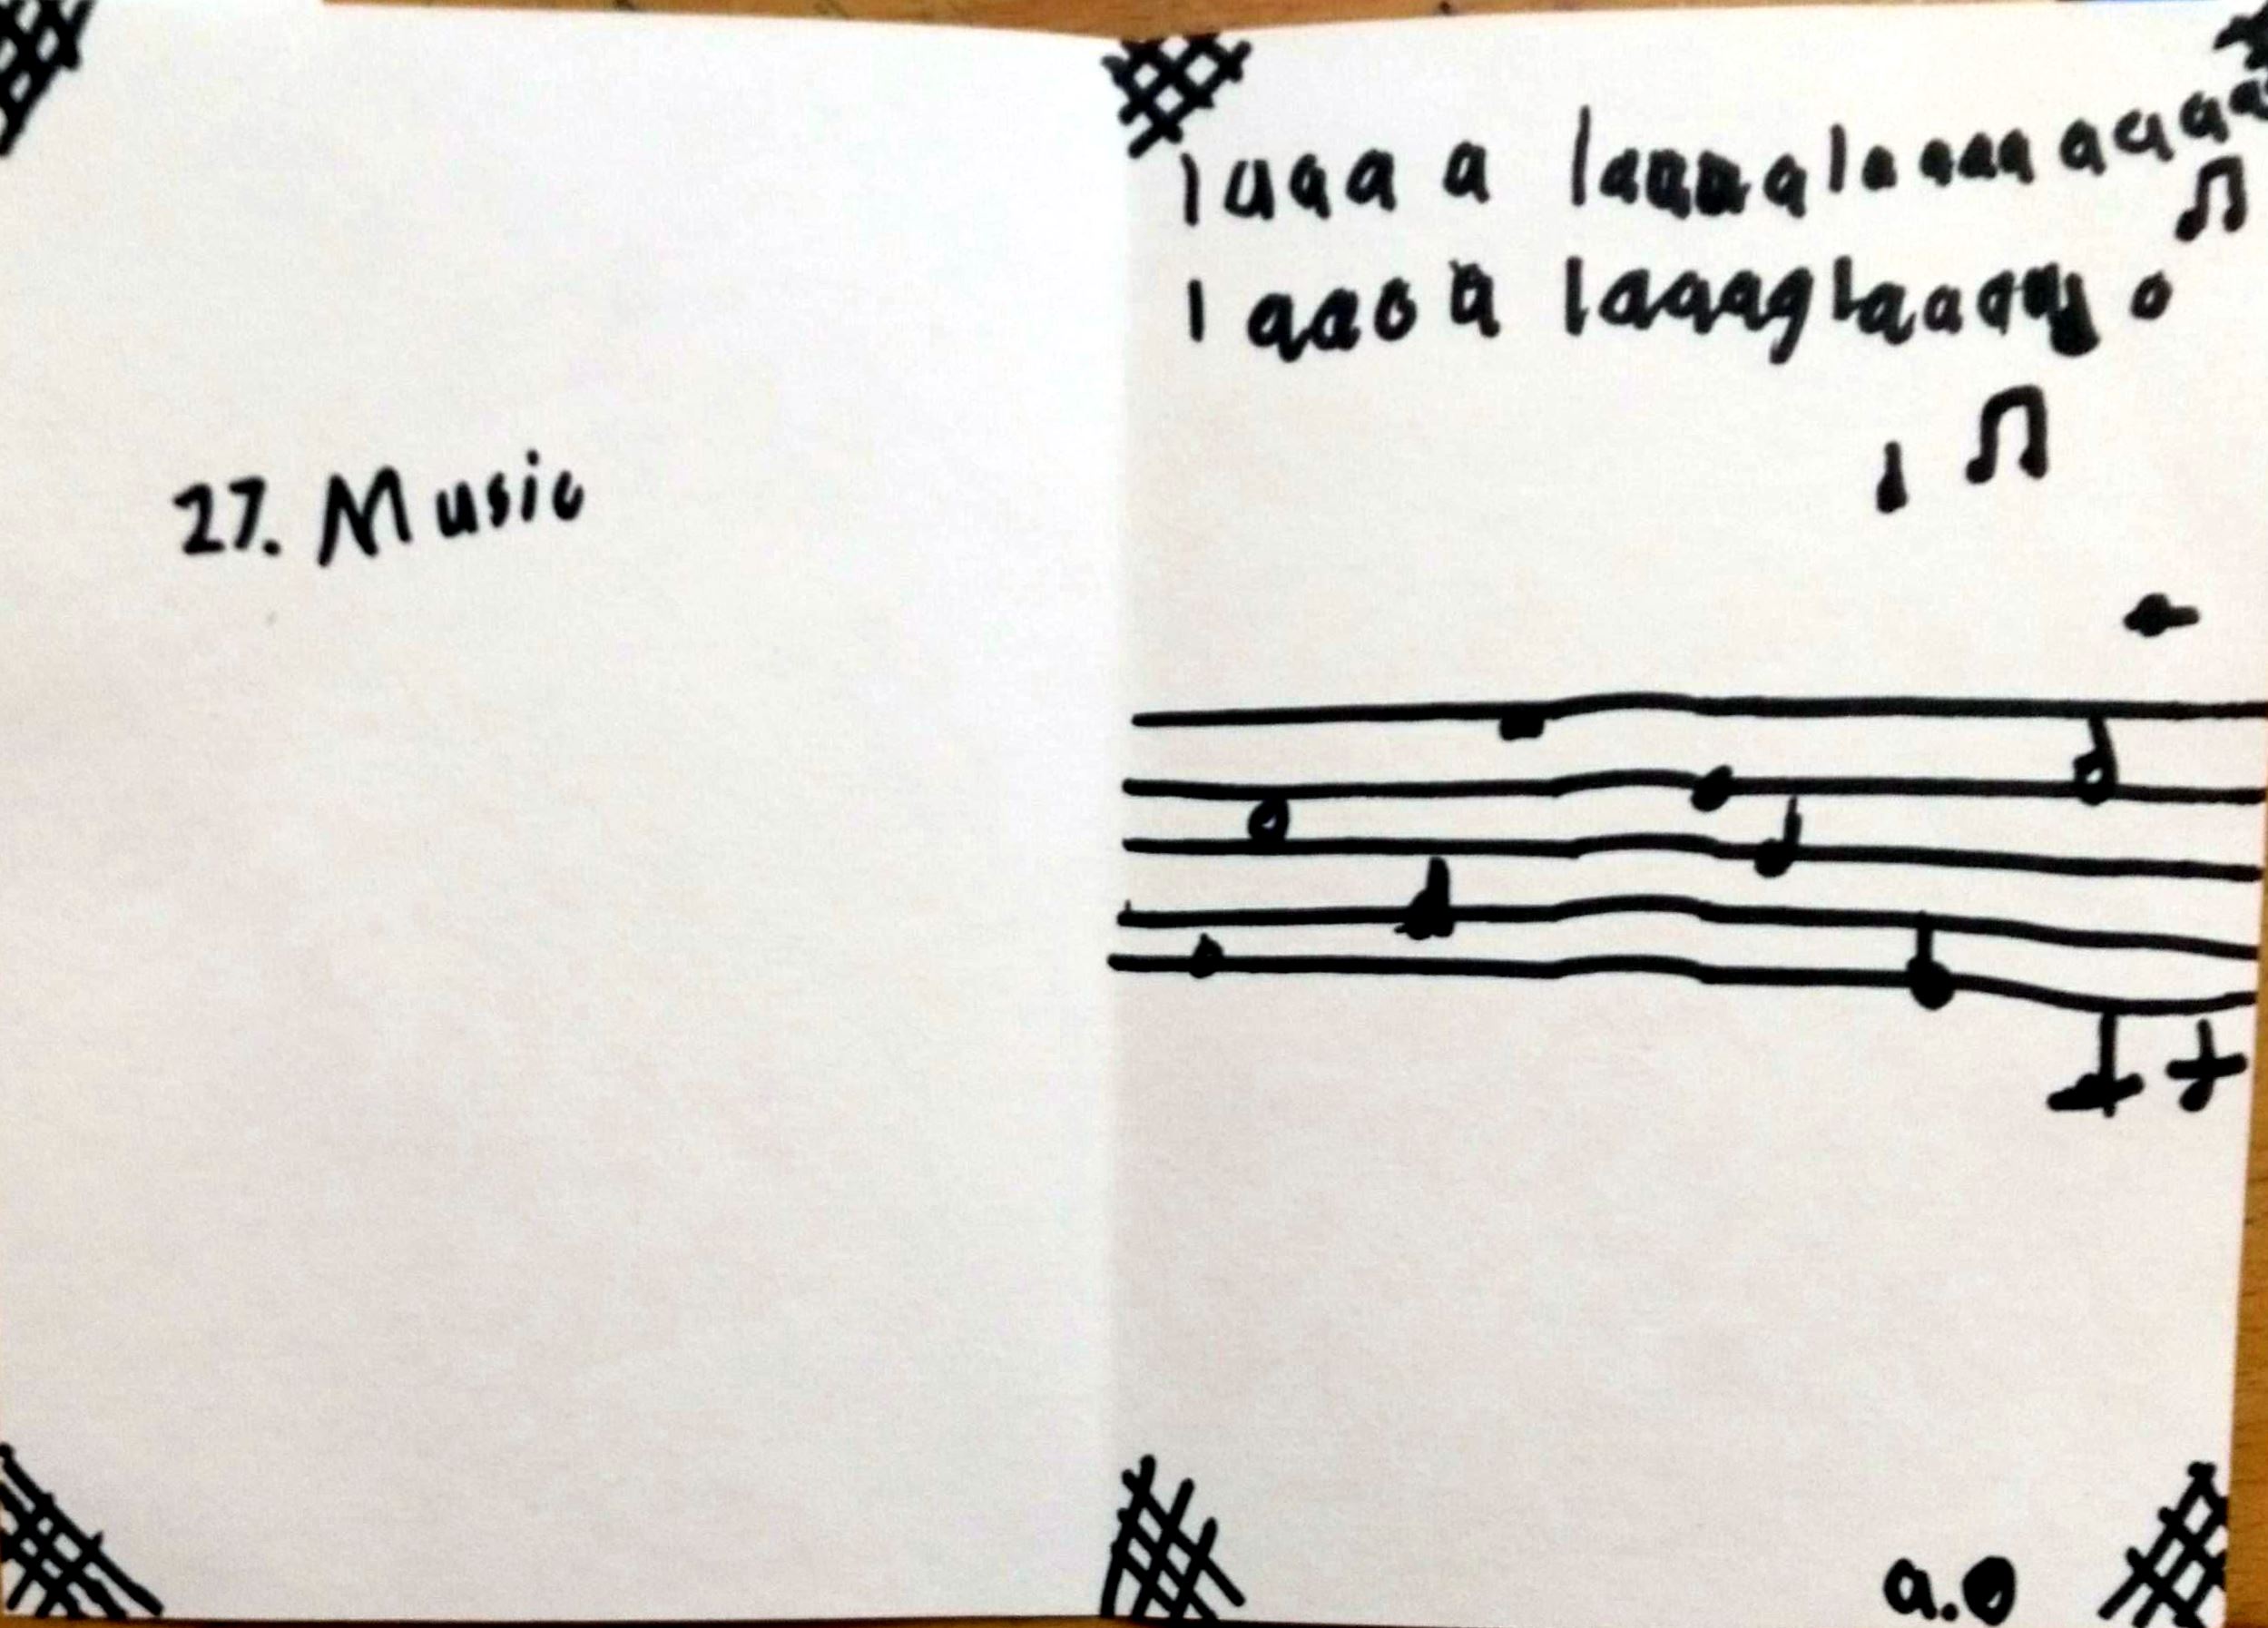 27. Music
laaa a laaaa laaaaa aaaa
laaoa laaaglaaaa o
a.o